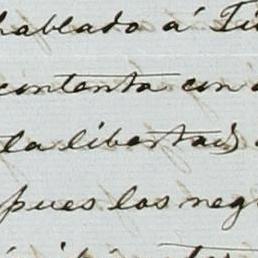 hablado á
contenta con
la libertad
pues los neg